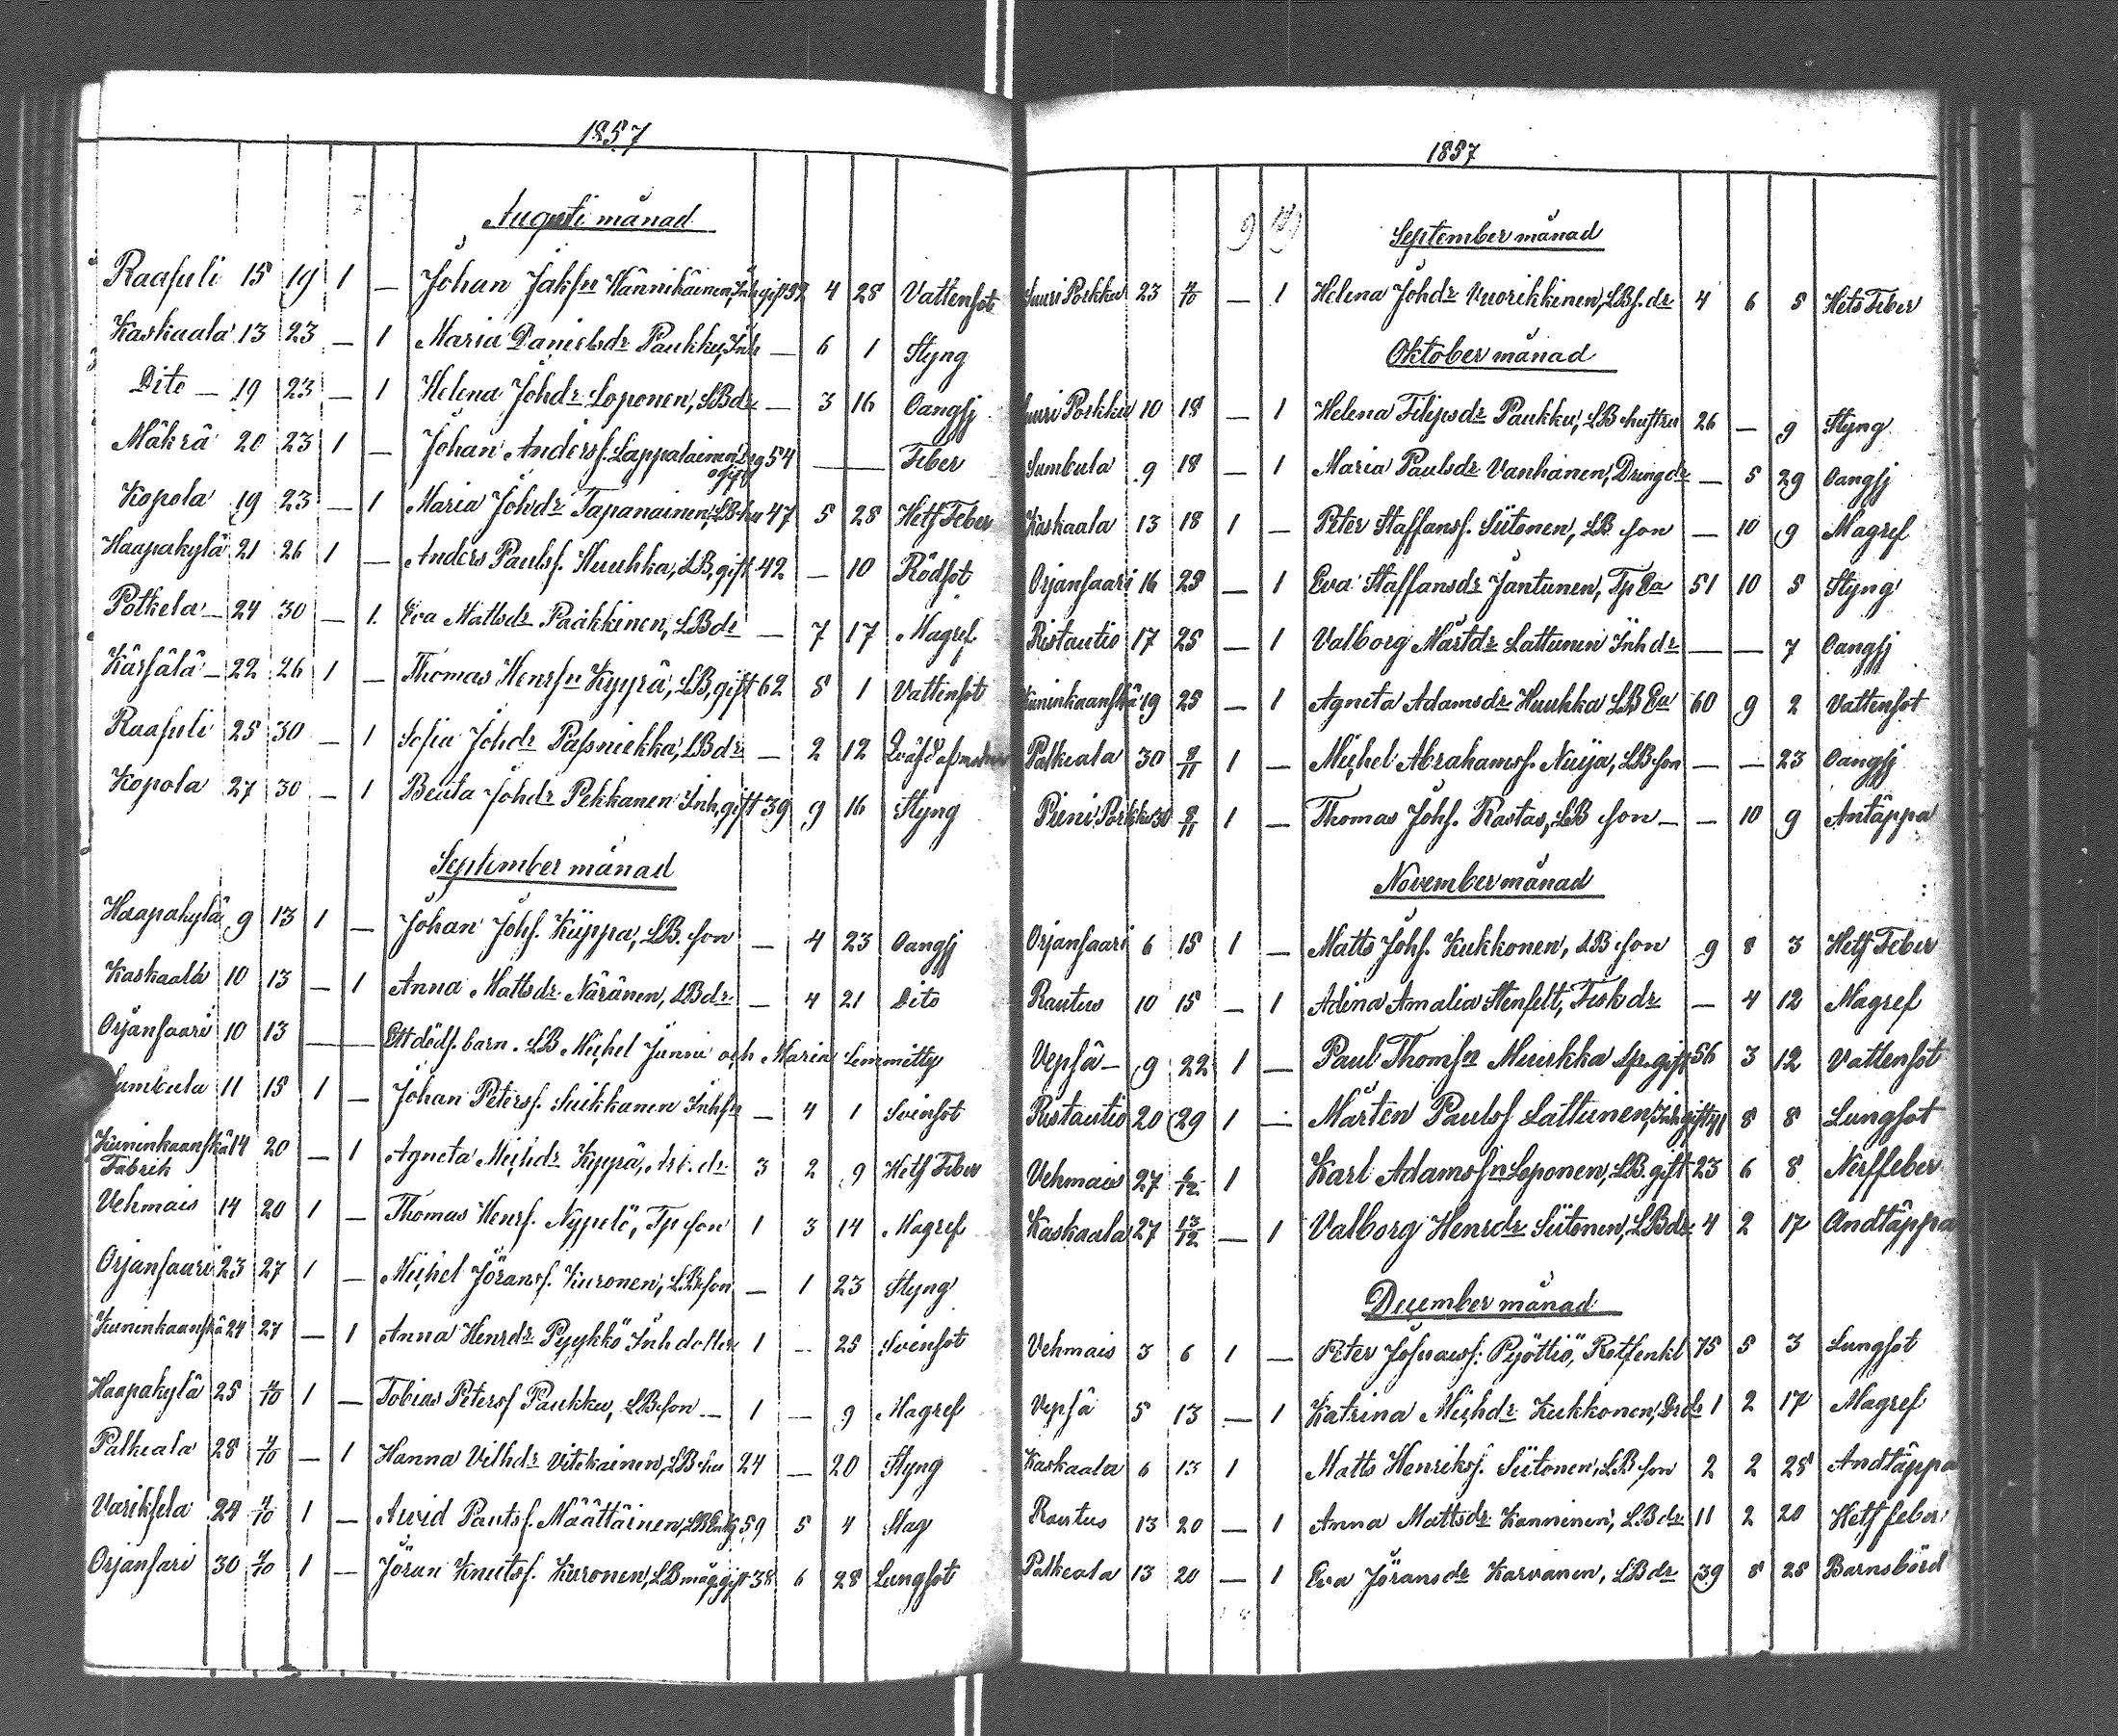 1857
Augusti månad
Raasuli 15 19 1 — Johan Jakfsn Hännikäinen, Inh gift 52 4 28 Vattensot
Kaskaala 13 23 — 1 Maria Danielsdr Paukku, Inh — 6 1 Styng
Dito — 19 23 — 1 Helena Johdr Loponen, LBdr — 3 16 Oangsj
Mäkrä 20 23 1 — Johan Andersf. Lappalainen 54 — Feber
ogift
Kopola 19 23 — 1 Maria Johdr Tapanainen, LB. hu 47 5 28 Hetf Feber
Haapakylä 21 26 1 — Anders Paulsf. Huuhka, LB, gift 42 — 10 Rödsot
Potkela — 24 30 — 1 Eva Mattsdr Paakkinen, LBdr — 7 17 Magref
Kärsälä — 22 26 1 — Thomas Henrsn Kyyrä, LB, gift 62 8 1 Vattensot
Raasuli 25 30 — 1 Sofia Johdr Passniekka, LBdr — 2 12
Kopola 27 30 — 1 Beata Johdr Pekkanen Inh, gift 39 9 16 Styng
September månad
Haapakylä 9 13 1 — Johan Johf. Küppa, LB. son — 4 23 Oangsj
Kaskaala 10 13 — 1 Anna Mattsdr Näränen, LBdr — 4 21 Dito
Orjansaari 10 13 — — Ett dödf. barn. LB Michel Junni och Maria Lemmitty
Sumbula 11 15 1 — Johan Petersf. Suikkanen Inhsn — 4 1 Svinsot
Kuninkaanskä 14 20 — 1 Agneta Michdr Kyyrä, Arb. dr 3 2 9 Hetf Feber
Fabrik
Vehmais 14 20 1 — Thomas Henrf. Nypelö, Tp son 1 3 14 Magref
Orjansaari 23 27 1 — Michel Jöransf. Kuronen, LB son — 1 23 Styng
Kuninkaanskä 24 27 — 1 Anna Henrdr Pyykkö Inh dotter 1 — 25 Svinsot
Haapakylä 25 4/10 1 — Tobias Petersf Paukku, LB son — 1 — 9 Magref
Palkeala 28 4/10 — 1 Hanna Vilhdr Vitikainen, LB hu 24 — 20 Styng
Varikfela 24 4/10 1 — Arvid Pautsf. Määttäinen, LB Enkl 59 5 4 Slag
Orjansari 30 4/10 1 — Jöran Knutsf. Kuronen, LB måg gift 38 6 28 Lungsot
1857
September månad
Suuri Porkku 23 4/10 — 1 Helena Johdr Vuorikkinen, LB f. dr 4 6 5 Hets Feber
Oktober månad
Suuri Porkku 10 18 — 1 Helena Filipsdr Paukku, LB hustru 26 — 9 Styng
Sumbula 9 18 — 1 Maria Paulsdr Vanhanen, Drängdr — 5 29 Oangsj
Kaskaala 13 18 1 — Peter Staffansf. Siitonen, LB son — 10 9 Magref
Orjansaari 16 25 — 1 Eva Staffansdr Jantunen, Tp Ea 51 10 5 Styng
Ristautio 17 25 — 1 Valborg Mårtdr Lattunen Inhdr — — 7 Oangsj
Kuninkaanskä 19 25 — 1 Agneta Adamsdr Huuhka LB Ea 60 9 2 Vattensot
Palkeala 30 8/11 1 — Michel Abrahamsf. Nuija, LB son — — 23 Oangsj
Pieni Porkku 30 8/11 1 — Thomas Johf. Rastas, LB son — — 10 9 Antäppa
November månad
Orjansaari 6 15 1 — Matts Johf. Kukkonen, LB son 9 8 3 Hetf Feber
Rautus 10 15 — 1 Adina Amalia Stenfelt, Fisk dr — 4 12 Magref
Vepsä — 9 22 1 — Paul Thomsn Muukka Sp. gift 56 3 12 Vattensot
Ristautio 20 29 1 — Mårten Paulsf Lattunen, Inh gift 41 8 8 Lungsot
Vehmais 27 6/12 1 Karl Adamssn Loponen, LB. gift 23 6 8 Nerffeber
Kaskaala 27 13/12 — 1 Valborg Henrdr Siitonen, LBdr 4 2 17 Andtäppa
December månad
Vehmais 3 6 1 — Peter Pyöttiö, Rotfenkl 75 5 3 Lungsot
Vepsä 5 13 — 1 Katrina Michdr Kukkonen, Drdr 1 2 17 Magref
Kaskaala 6 13 1 Matts Henriksf. Siitonen, LB son 2 2 25 Andtäppa
Rautus 13 20 — 1 Anna Mattsdr Kanninen, LBdr 11 2 20 Hetf feber
Palkeala 13 20 — 1 Eva Jöransdr Karvanen, LBdr 39 8 25 Barnsbörd